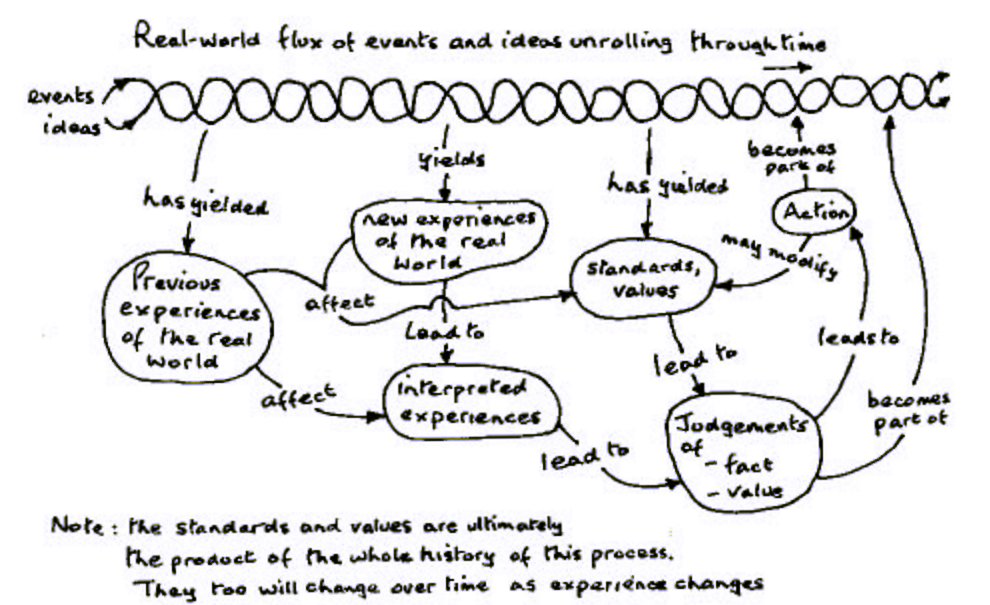 Real-world flux of events and ideas unrolling through time
events
ideas
yields
becomes
part of
has yielded
has yielded
Action
new experiences
of the real
World
may modify
Previous
experiences
of the real
World
standards,
values
affect
Lead to
leads to
lead to
interpreted
experiences
affect
becomes
part of
Judgements
of
- fact
- value
lead to
Note: the standards and values are ultimately
the product of the whole history of this process.
They too will change over time as experience changes